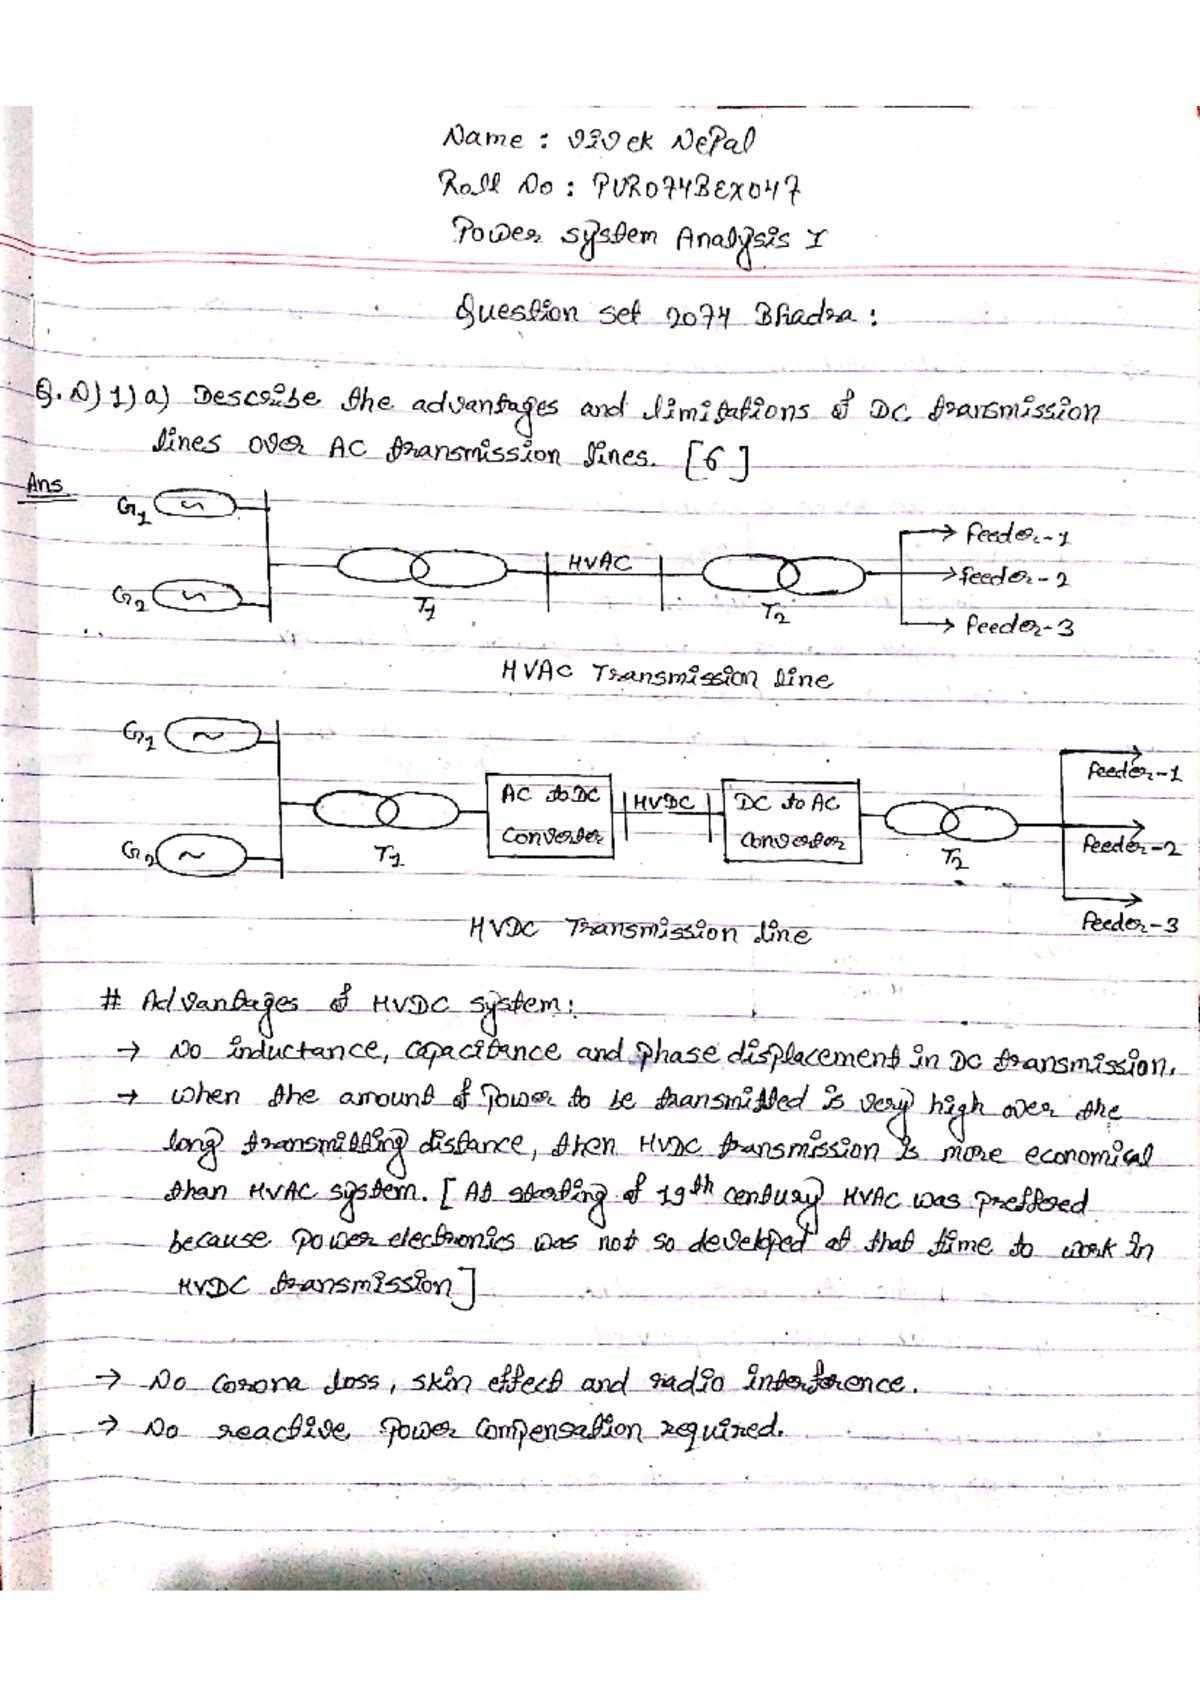 Name : Vivek Nepal
Roll No : PUR074BEX047
Power system Analysis I
Question set 2074 Bhadra :
Q.N) 1) a) Describe the advantages and limitations of DC transmission
lines over AC transmission lines. [6]
Ans
G1
HVAC
G2
T1
T2
feeder-1
feeder-2
feeder-3
HVAC Transmission line
G1
G2
T1
AC to DC
Converter
HVDC
DC to AC
Converter
T2
feeder-1
feeder-2
feeder-3
HVDC Transmission line
# Advantages of HVDC system:
→ No inductance, capacitance and phase displacement in DC transmission.
→ when the amount of power to be transmitted is very high over the
long transmitting distance, then HVDC transmission is more economical
than HVAC system. [At starting of 19th century HVAC was preffered
because power electronics was not so developed at that time to work in
HVDC transmission]
→ No corona loss, skin effect and radio interference.
→ No reactive power compensation required.